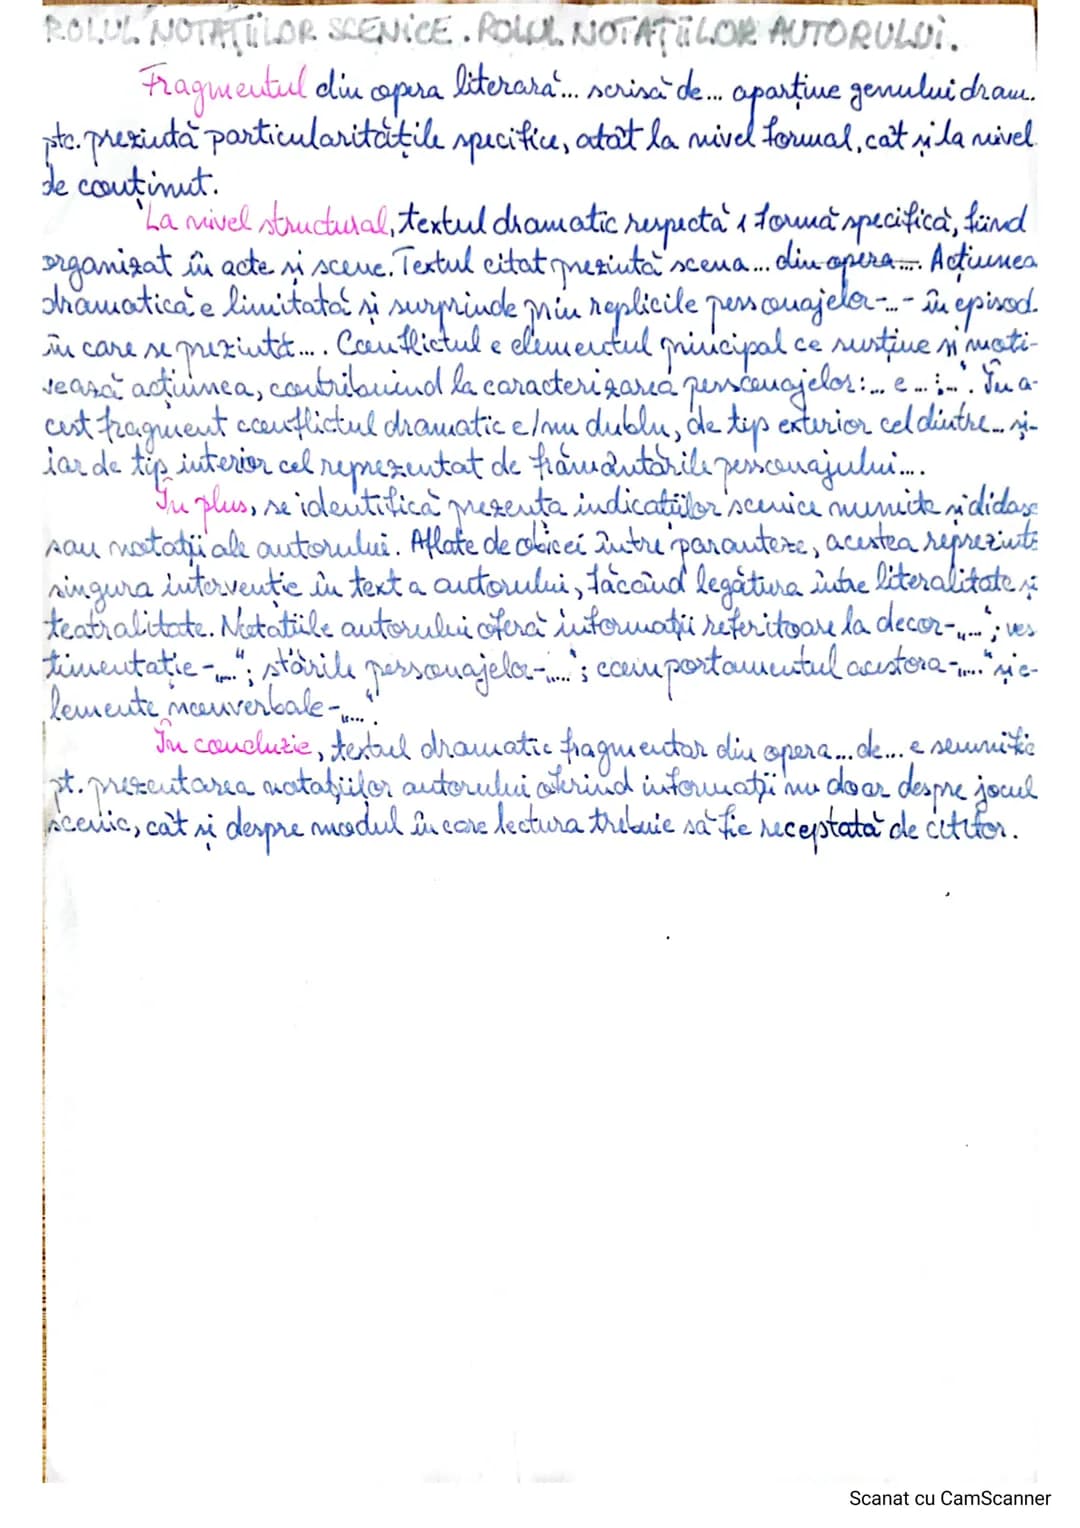 ROLUL NOTAȚIILOR SCENICE. ROLUL NOTAȚIILOR AUTORULUI.
Fragmentul din opera literară... scrisă de... aparține genului dram.
ptc. prezintă particularitățile specifice, atât la nivel formal, cât și la nivel
de conținut.
La nivel structural, textul dramatic respectă 1 formă specifică, fiind
organizat în acte și scene. Textul citat prezintă scena... din opera.... Acțiunea
dramatică e limitată și surprinde prin replicile personajelor-...- în episod.
în care se prezintă.... Conflictul e elementul principal ce susține și moti-
vează acțiunea, contribuind la caracterizarea personajelor:... e...;...". În a-
cest fragment conflictul dramatic e/nu dublu, de tip exterior cel dintre... și-
iar de tip interior cel reprezentat de frământările personajului....
În plus, se identifică prezența indicațiilor scenice numite și didasc
sau notații ale autorului. Aflate de obicei între paranteze, acestea reprezintă
singura intervenție în text a autorului, făcând legătura între literalitate și
teatralitate. Notațiile autorului oferă informații referitoare la decor-„..."; ves
timentație-„..."; stările personajelor-„..."; comportamentul acestora-„..." și e-
lemente nonverbale-„...".
În concluzie, textul dramatic fragmentar din opera... de... e semnific
pt. prezentarea notațiilor autorului oferind informații nu doar despre jocul
scenic, cât și despre modul în care lectura trebuie să fie receptată de cititor.
Scanat cu CamScanner